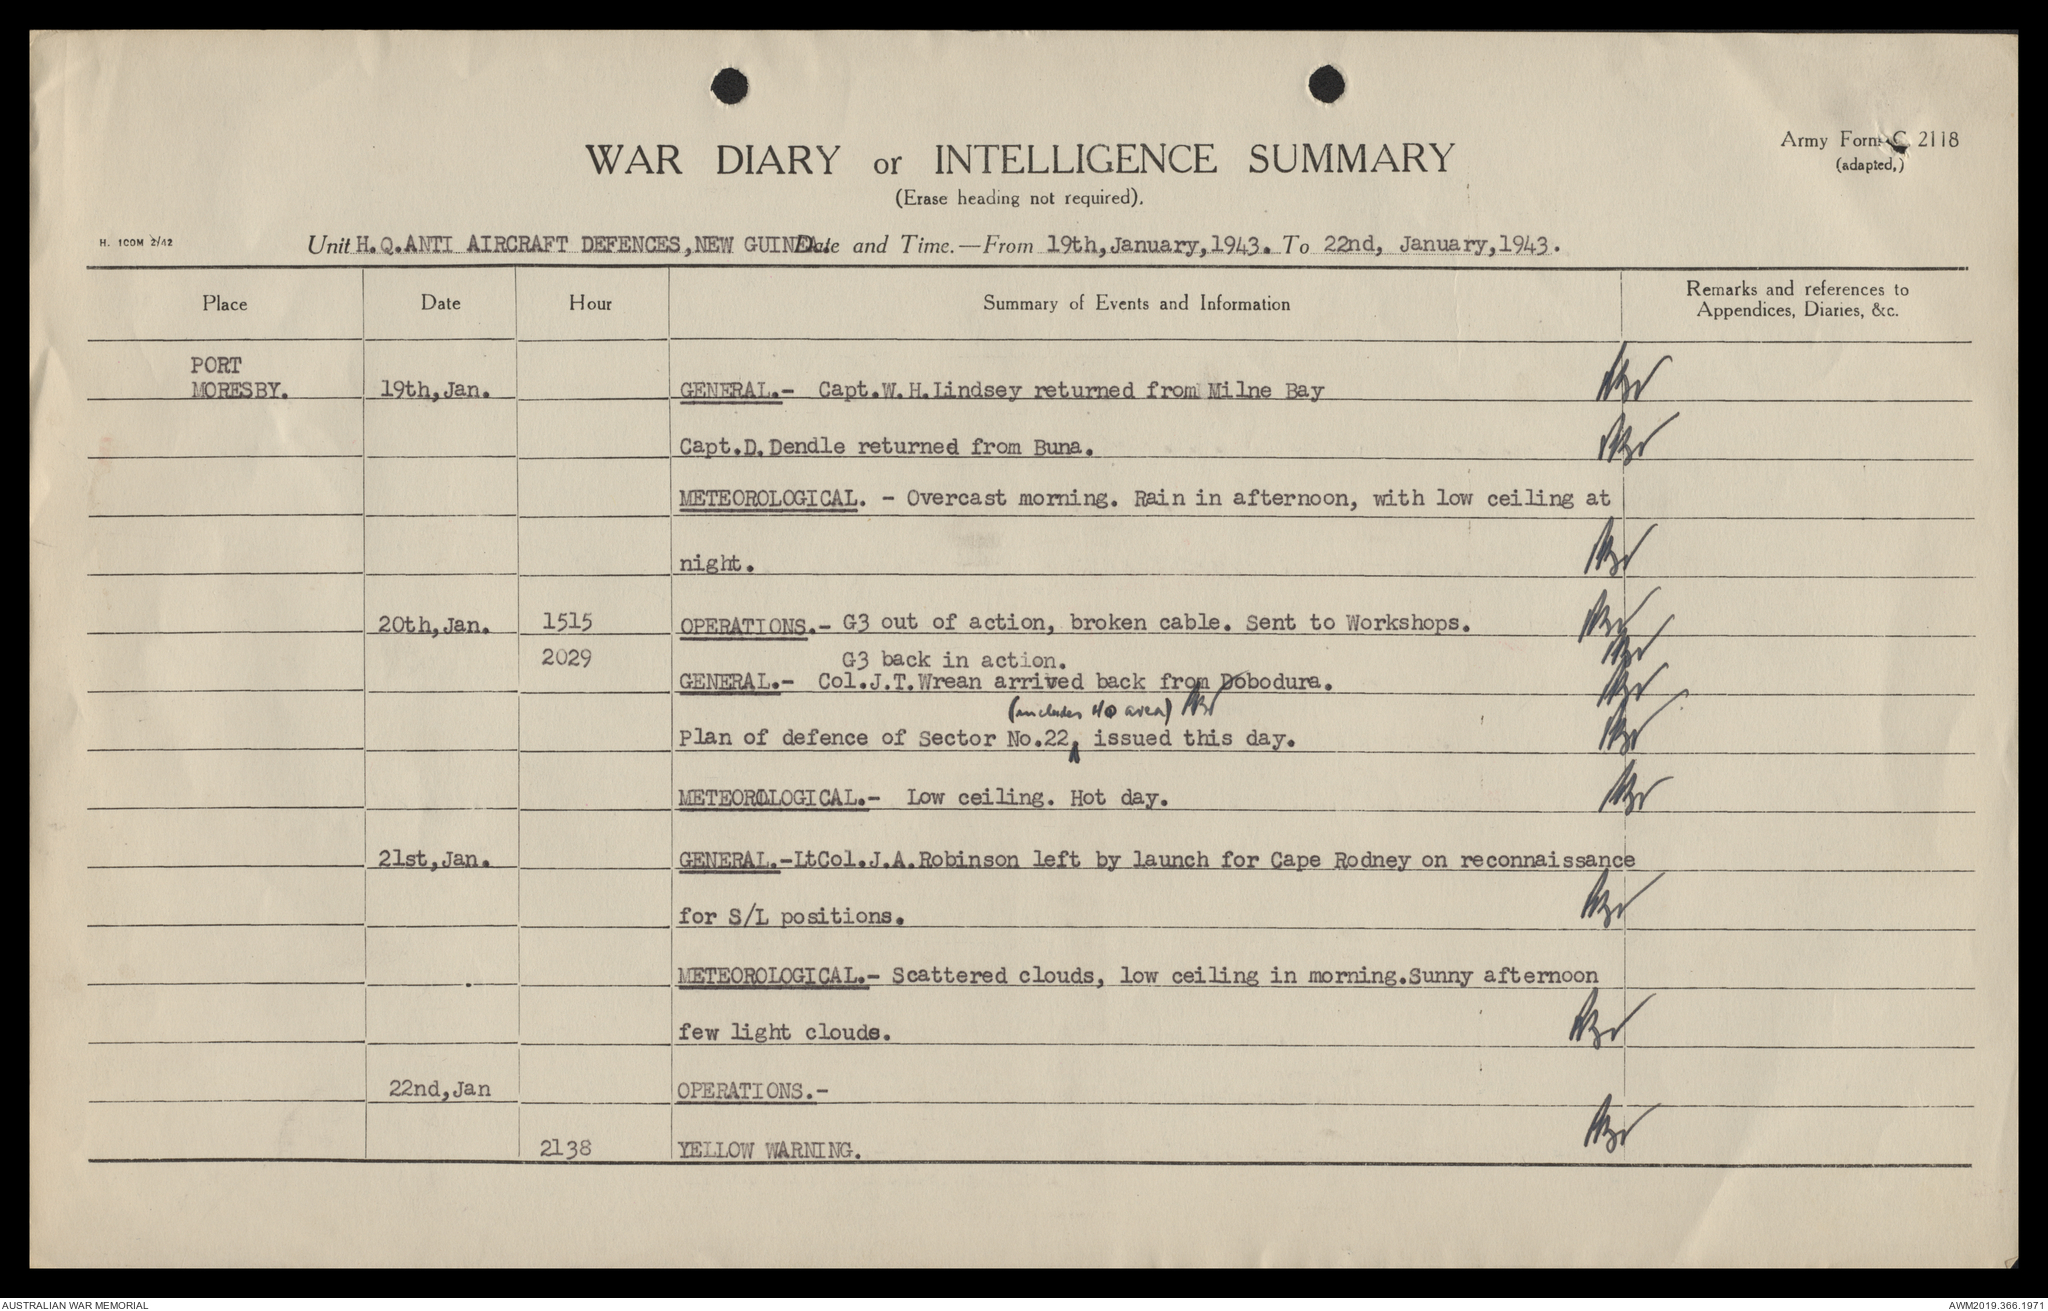 WAR DIARY or INTELLIGENCE SUMMARY
(Erase heading not required).
Army Form C 2118
(adapted,)
H. 1COM 2/42
Unit H.Q.ANTI AIRCRAFT DEFENCES,NEW GUINEA. Date and Time.—From 19th,January,1943. To 22nd, January,1943.
Place Date Hour Summary of Events and Information Remarks and references to
Appendices, Diaries, &c.
PORT
MORESBY. 19th,Jan. GENERAL.- Capt.W.H.Lindsey returned from Milne Bay
Capt.D.Dendle returned from Buna.
METEOROLOGICAL. - Overcast morning. Rain in afternoon, with low ceiling at
night.
20th,Jan. 1515 OPERATIONS.- G3 out of action, broken cable. Sent to Workshops.
2029 G3 back in action.
GENERAL.- Col.J.T.Wrean arrived back from Dobodura.
(includes 40 area)
Plan of defence of Sector No.22 issued this day.
METEOROLOGICAL.- Low ceiling. Hot day.
21st,Jan. GENERAL.-LtCol.J.A.Robinson left by launch for Cape Rodney on reconnaissance
for S/L positions.
METEOROLOGICAL.- Scattered clouds, low ceiling in morning.Sunny afternoon
few light clouds.
22nd,Jan OPERATIONS.-
2138 YELLOW WARNING.
AUSTRALIAN WAR MEMORIAL AWM2019.366.1971